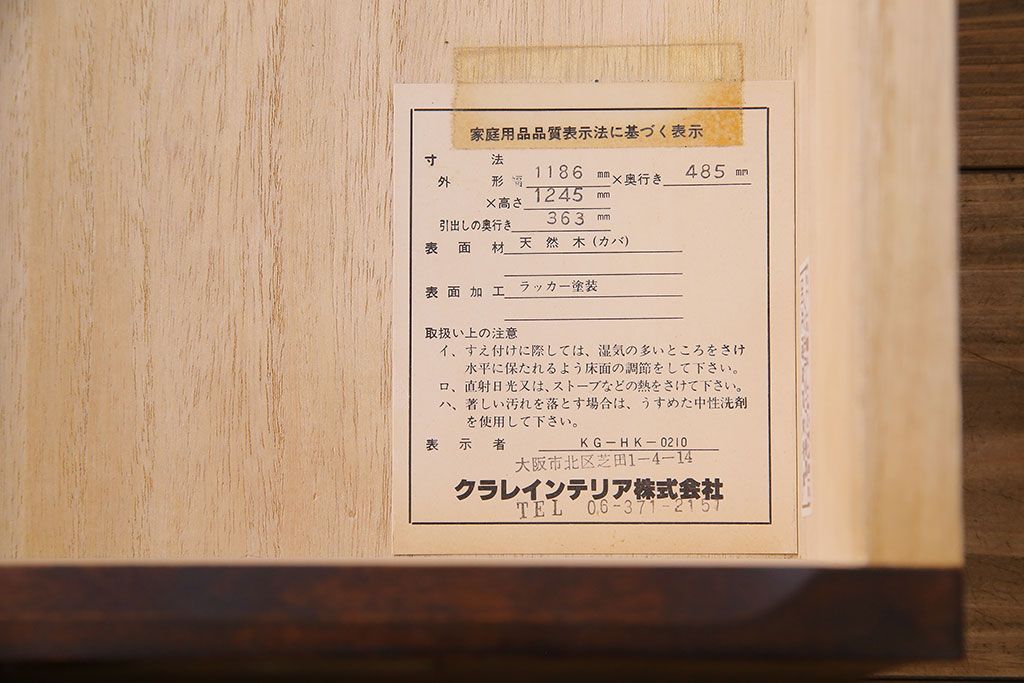 家庭用品品質表示法に基づく表示
寸法
外形 幅 1186 mm ×奥行き 485 mm
×高さ 1245 mm
引出しの奥行き 363 mm
表面材 天然木(カバ)
表面加工 ラッカー塗装
取扱い上の注意
イ、すえ付けに際しては、湿気の多いところをさけ
水平に保たれるよう床面の調節をして下さい。
ロ、直射日光又は、ストーブなどの熱をさけて下さい。
ハ、著しい汚れを落とす場合は、うすめた中性洗剤
を使用して下さい。
表示者 KG-HK-0210
大阪市北区芝田1-4-14
クラレインテリア株式会社
TEL 06-371-2157